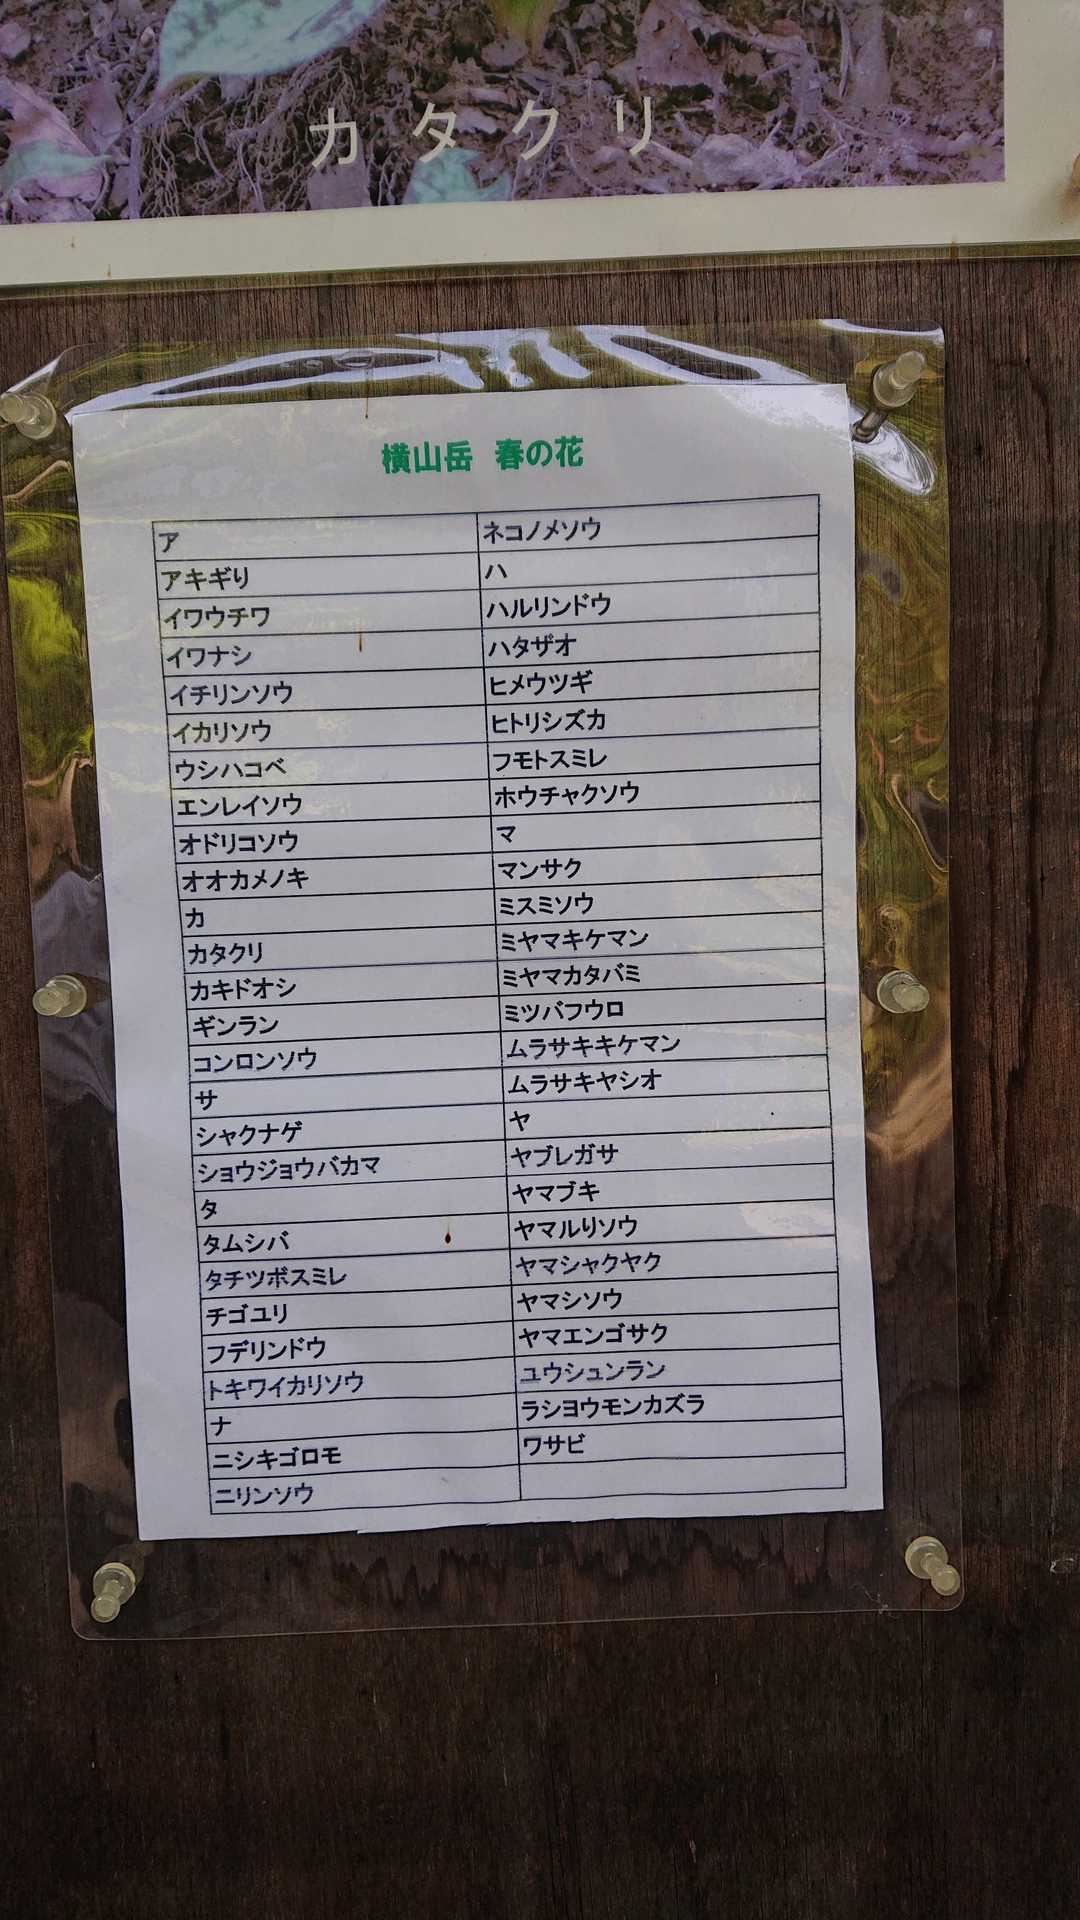 カタクリ
横山岳 春の花
ア
アキギり
イワウチワ
イワナシ
イチリンソウ
イカリソウ
ウシハコベ
エンレイソウ
オドリコソウ
オオカメノキ
カ
カタクリ
カキドオシ
ギンラン
コンロンソウ
サ
シャクナゲ
ショウジョウバカマ
タ
タムシバ
タチツボスミレ
チゴユリ
フデリンドウ
トキワイカリソウ
ナ
ニシキゴロモ
ニリンソウ
ネコノメソウ
ハ
ハルリンドウ
ハタザオ
ヒメウツギ
ヒトリシズカ
フモトスミレ
ホウチャクソウ
マ
マンサク
ミスミソウ
ミヤマキケマン
ミヤマカタバミ
ミツバフウロ
ムラサキキケマン
ムラサキヤシオ
ヤ
ヤブレガサ
ヤマブキ
ヤマルりソウ
ヤマシャクヤク
ヤマシソウ
ヤマエンゴサク
ユウシュンラン
ラショウモンカズラ
ワサビ